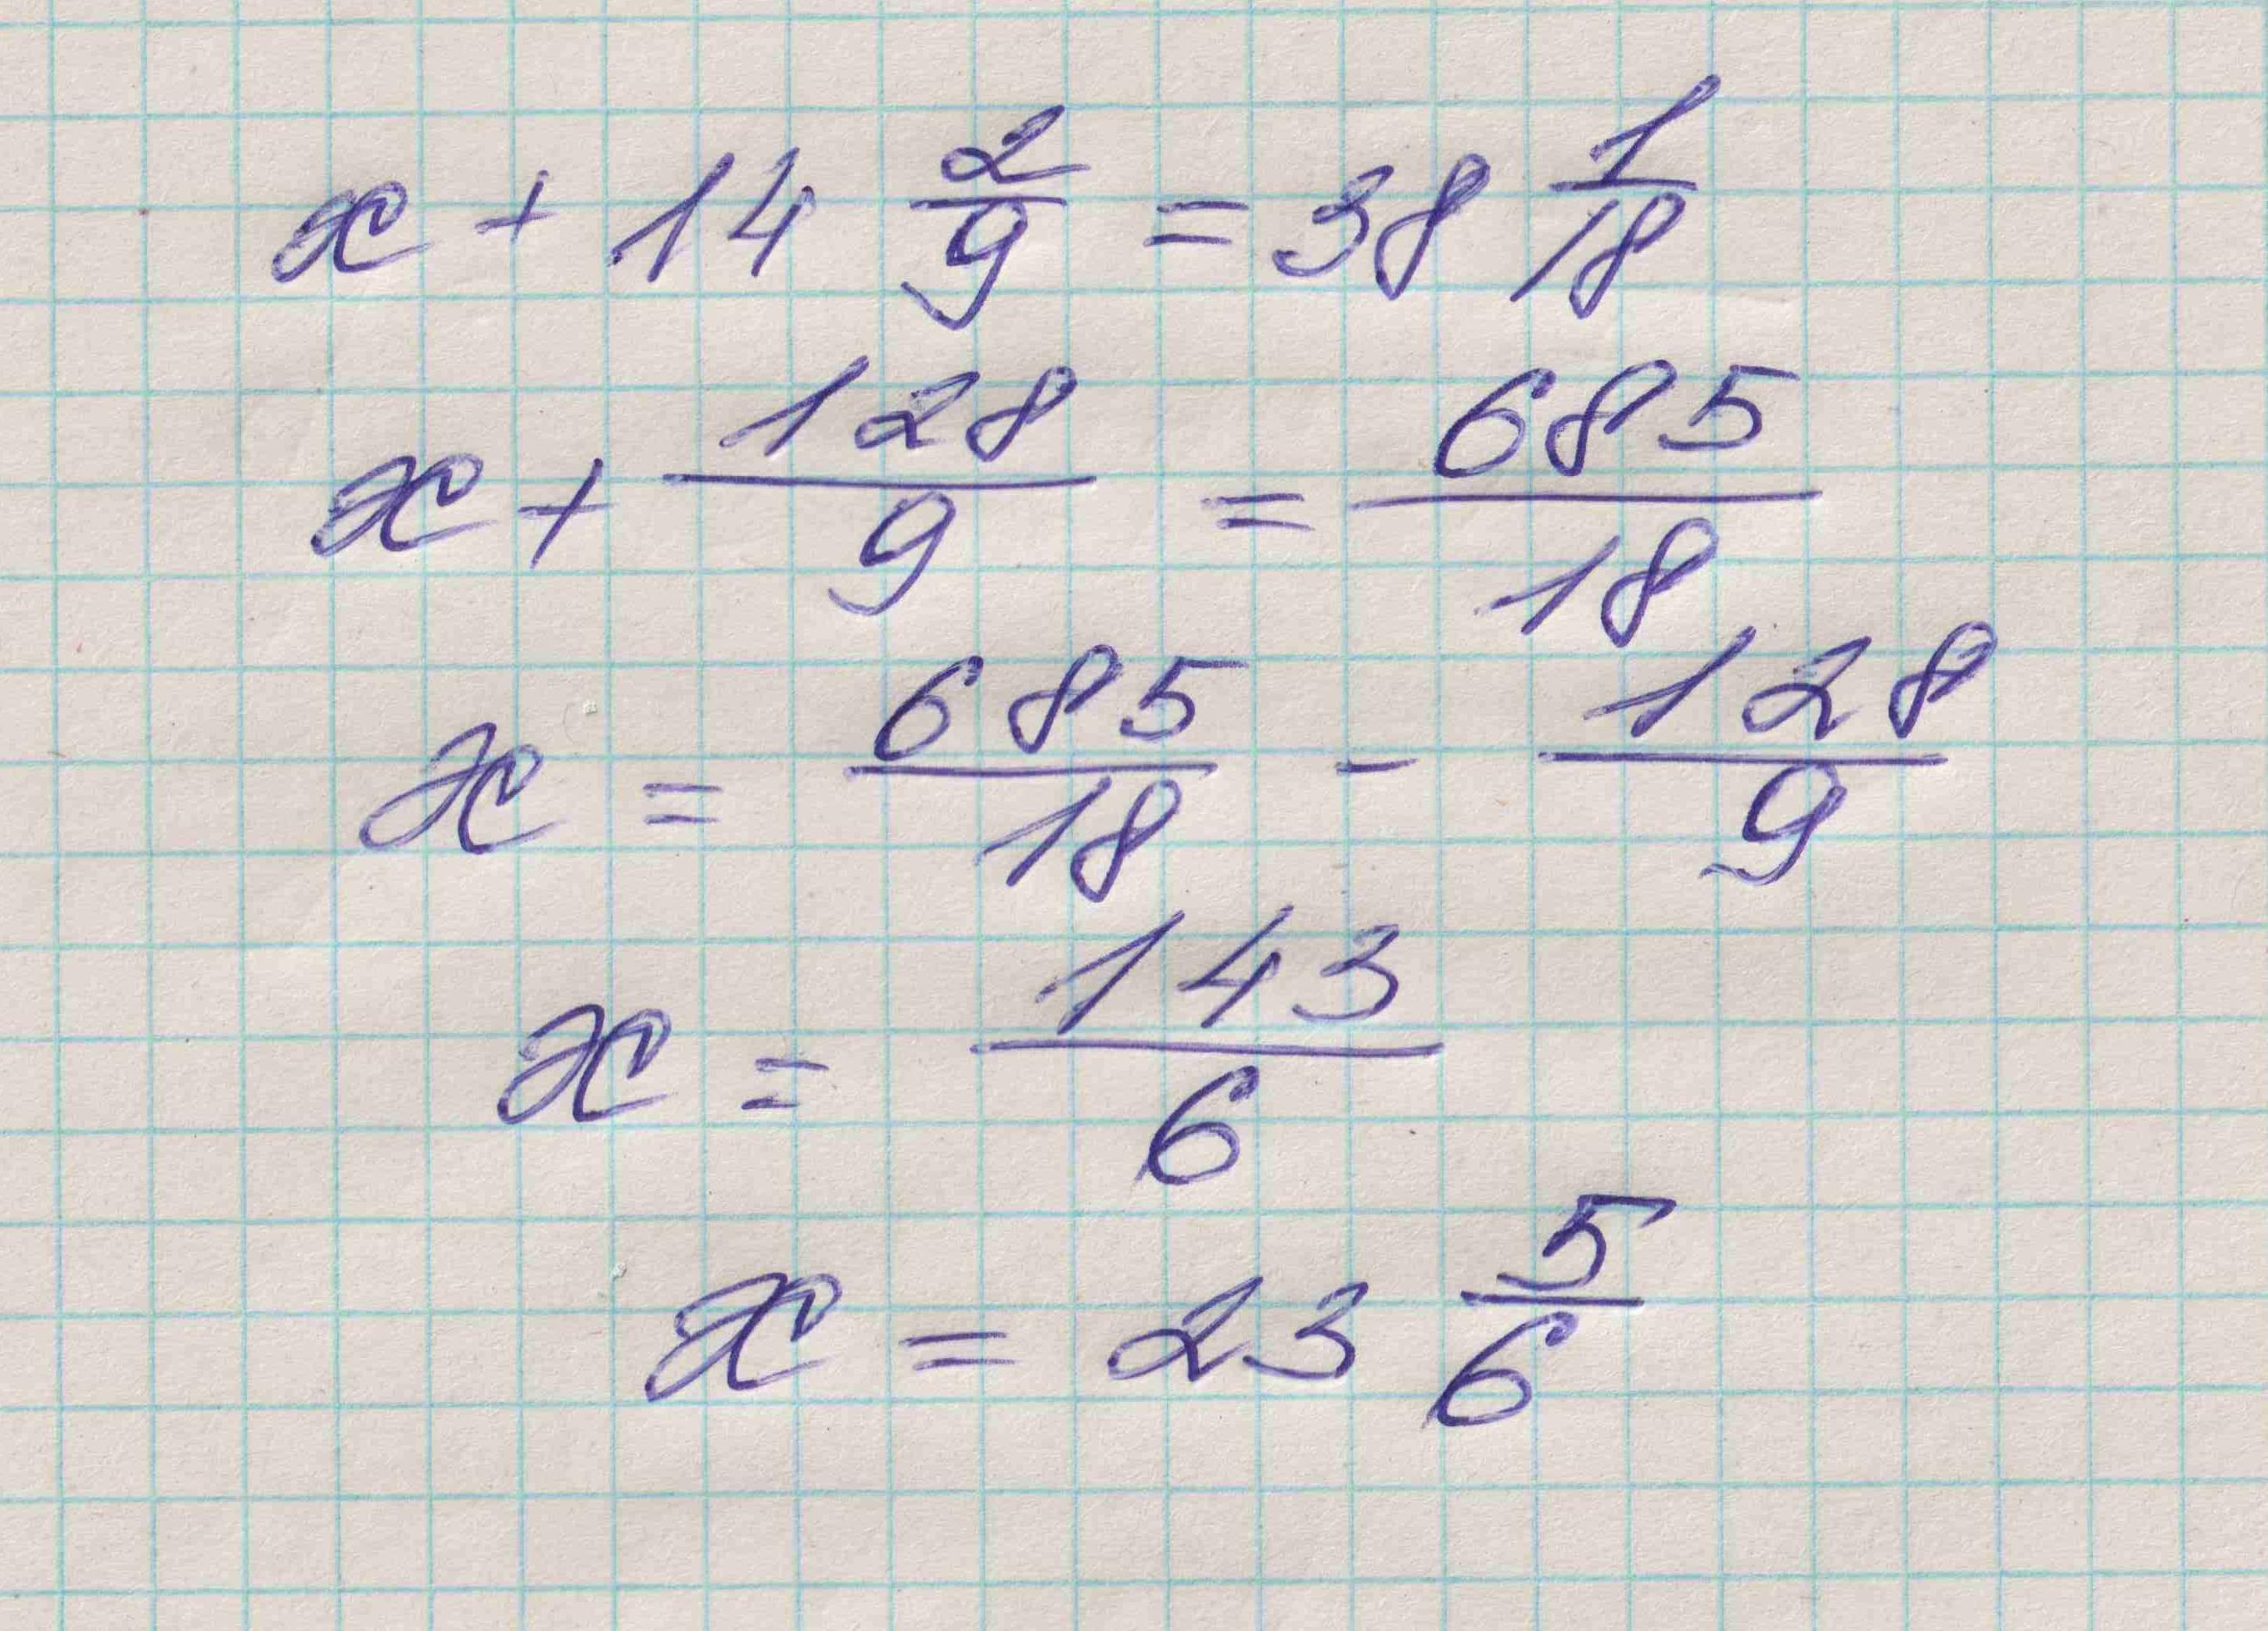 x + 14 2/9 = 38 1/18
x + 128/9 = 685/18
x = 685/18 - 128/9
x = 143/6
x = 23 5/6